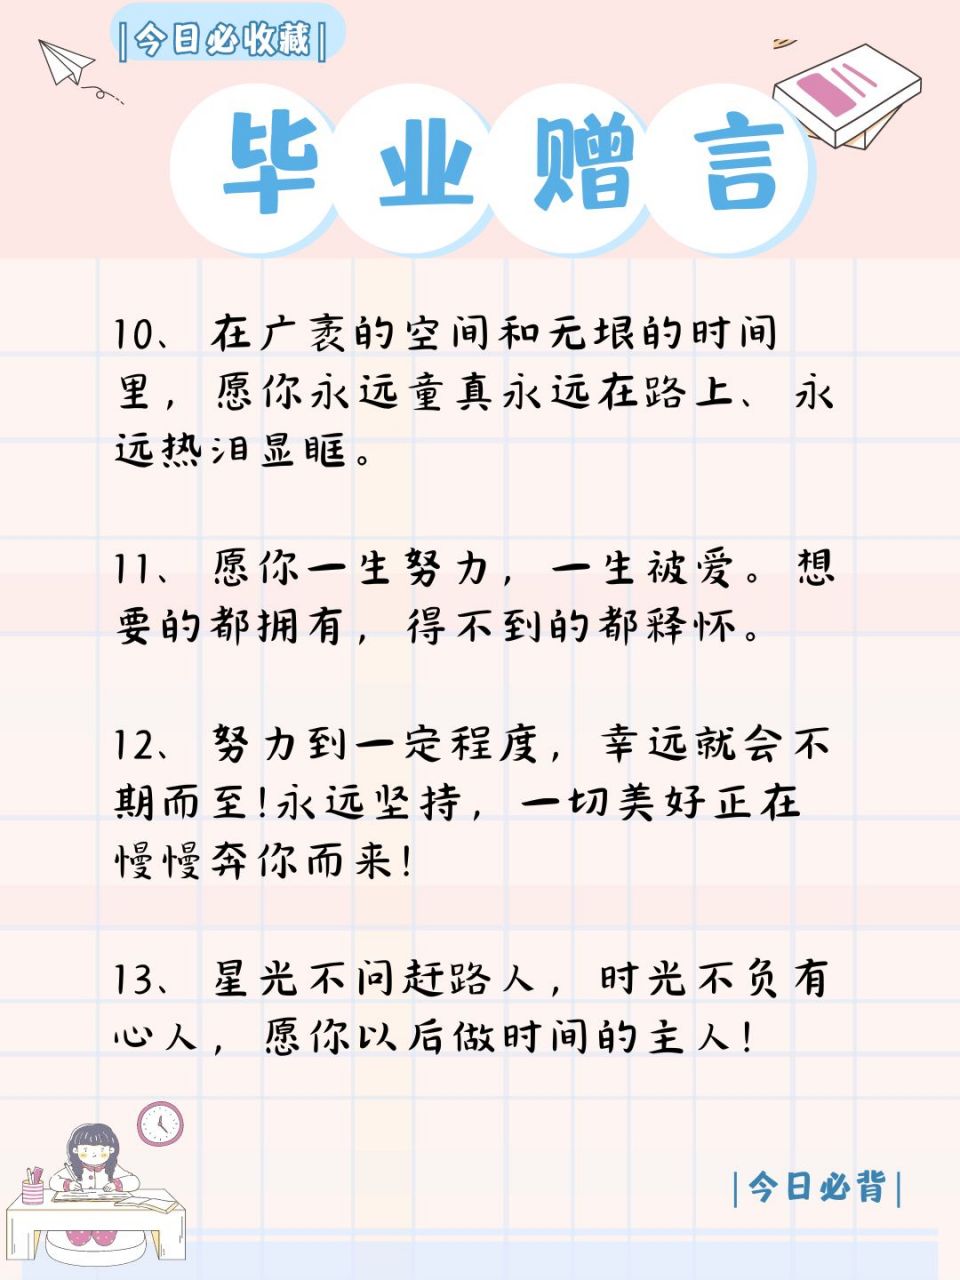 |今日必收藏|
毕业赠言
10、在广袤的空间和无垠的时间
里，愿你永远童真永远在路上、永
远热泪显眶。
11、愿你一生努力，一生被爱。想
要的都拥有，得不到的都释怀。
12、努力到一定程度，幸远就会不
期而至!永远坚持，一切美好正在
慢慢奔你而来!
13、星光不问赶路人，时光不负有
心人，愿你以后做时间的主人!
|今日必背|